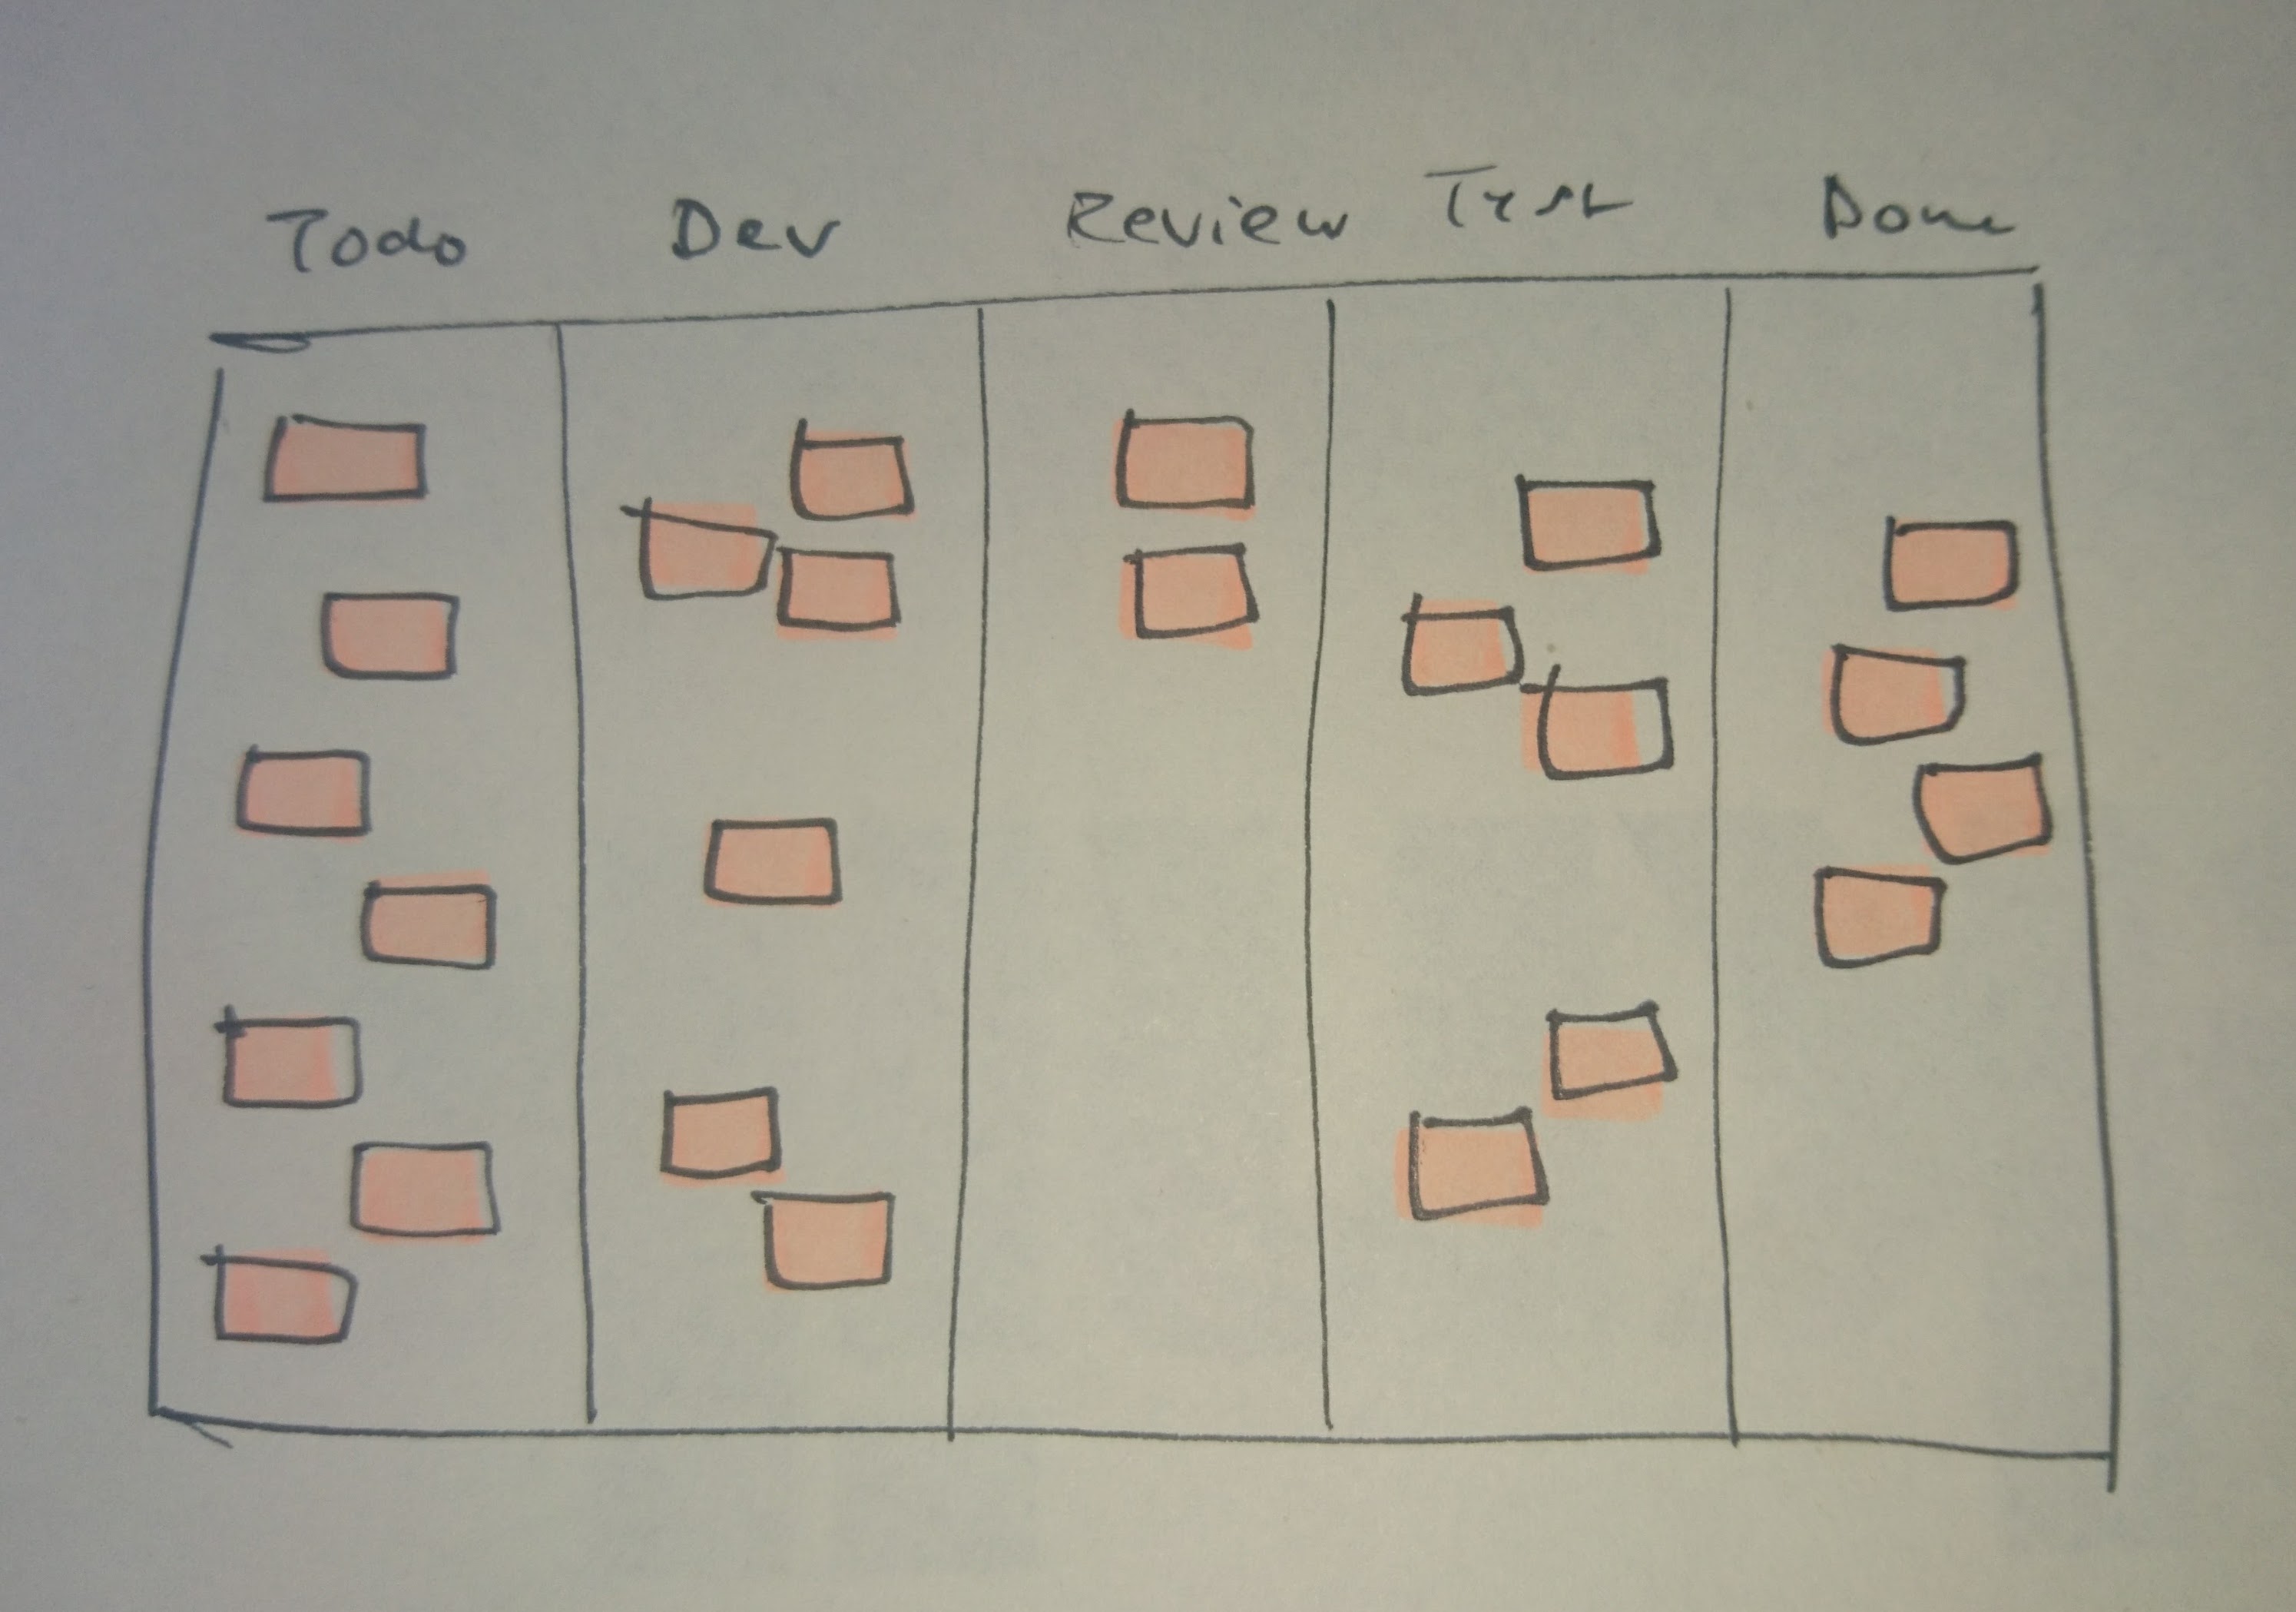 Todo Dev Review Test Done